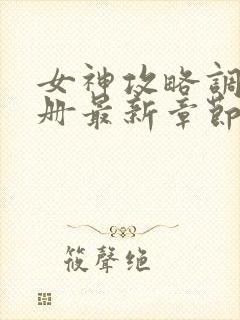 女神攻略調
册最新章節
筱聲绝